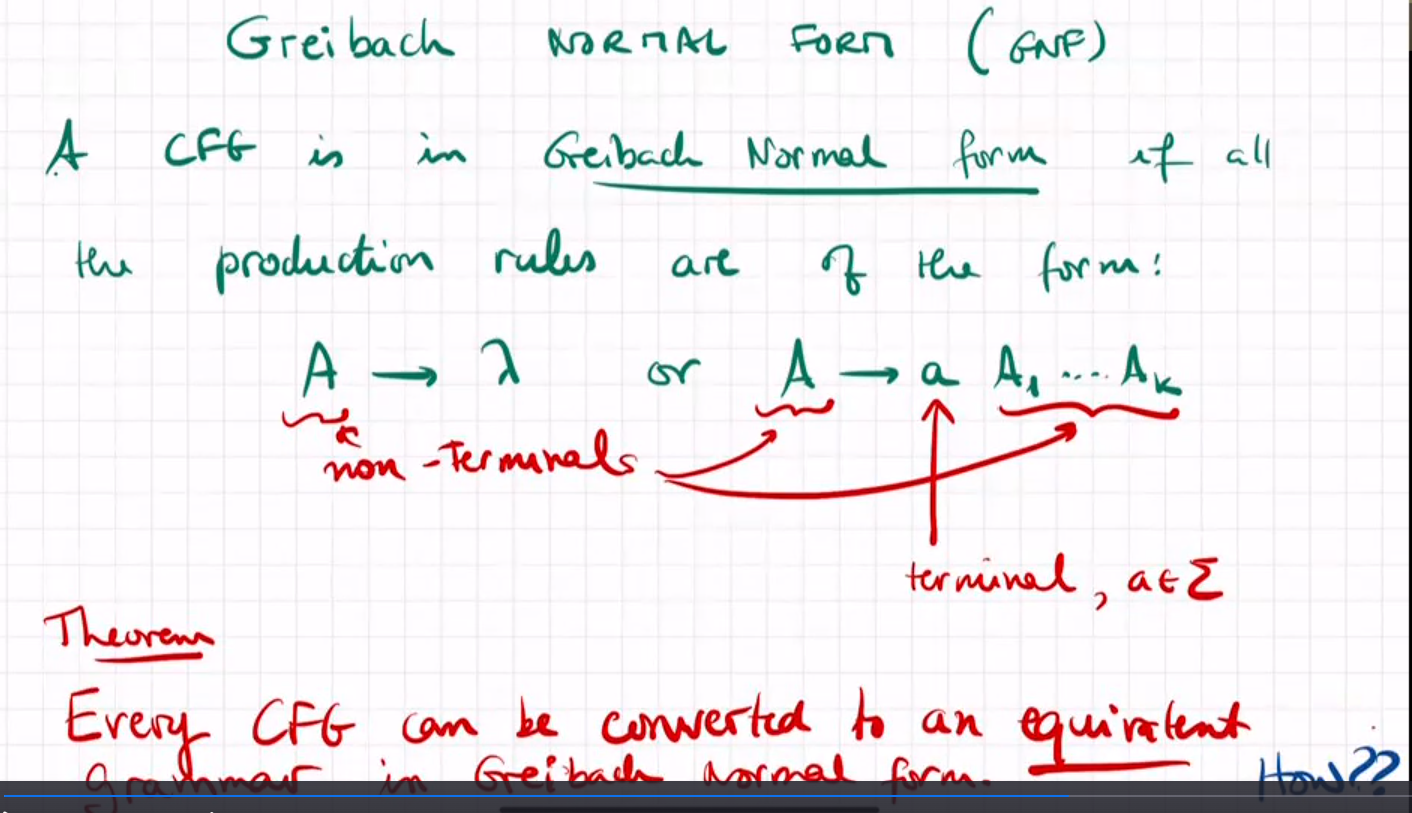 Greibach NORMAL FORM (GNF)
A CFG is in Greibach Normal form if all
the production rules are of the form:
A → λ or A → a A₁ .... Aₖ
non-Terminals
terminal, a∈Σ
Theorem
Every CFG can be converted to an equivalent
grammar in Greibach Normal form. How??